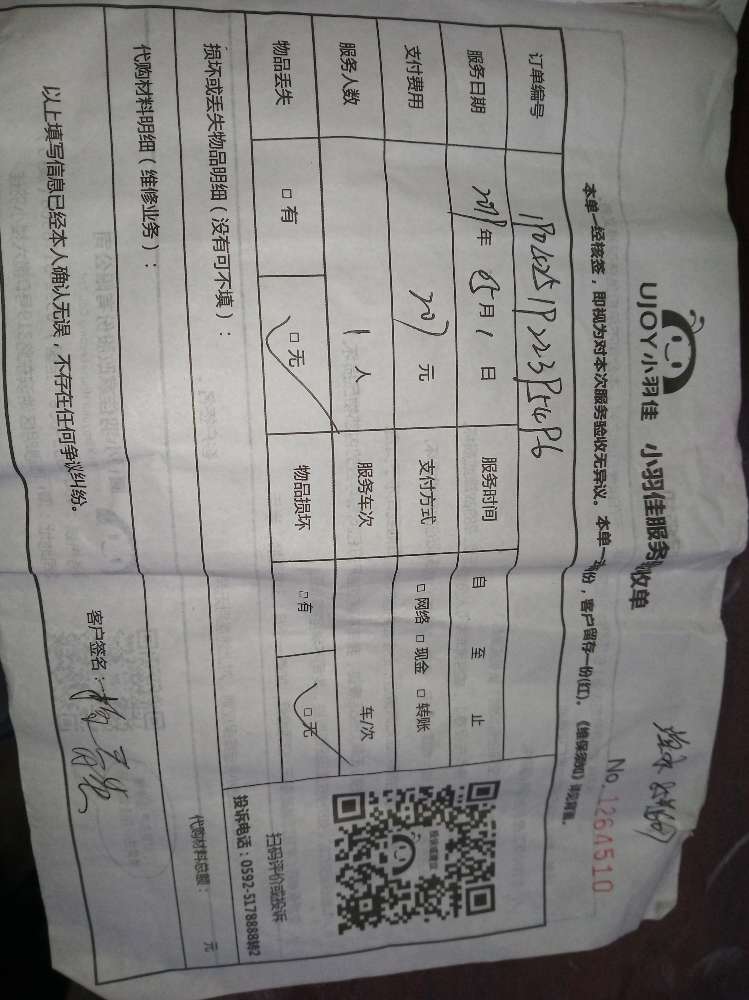 UJOY小羽佳 小羽佳服务 收单
No.1264510
本单一经核签，即视为对本次服务验收无异议。本单一 份，客户留存一份(红)。《维保须知》详见背面。
订单编号 1804251922395496
服务日期 2018年 05月 1 日 服务时间 自 至 止
支付费用 207 元 支付方式 □网络 □现金 □转账
服务人数 1 人 服务车次 车/次
物品丢失 □有 □无 物品损坏 □有 □无
扫码评价或投诉
投诉电话：0592-5178888转2
损坏或丢失物品明细（没有可不填）：
代购材料明细（维修业务）：
代购材料总额： 元
以上填写信息已经本人确认无误，不存在任何争议纠纷。
客户签名：